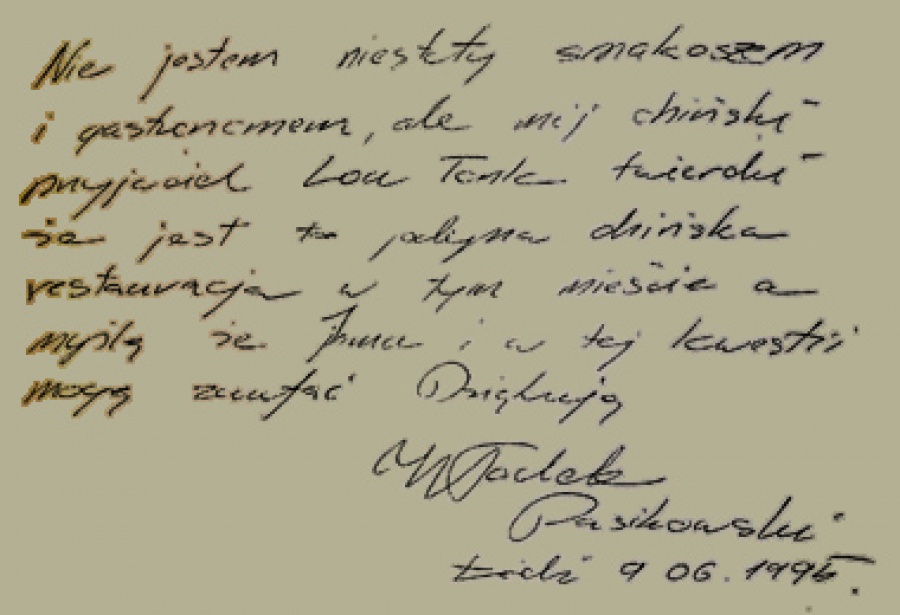 Nie jestem niestety smakoszem
i gastronomem, ale mój chiński
przyjaciel Lou Tank twierdzi
że jest to jedyna chińska
restauracja w tym mieście a
myślę że Jemu i w tej kwestii
mogę zaufać Dziękuję
W Tadek
Pasikowski
Łódź 9 06. 1995.